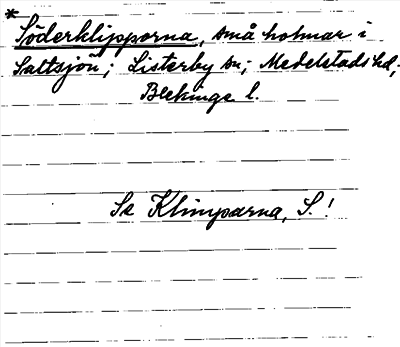 *
Söderklipporna, små holmar i
Saltsjön; Listerby sn; Medelstads hd,
Blekinge l.
Se Klimparna, S.!